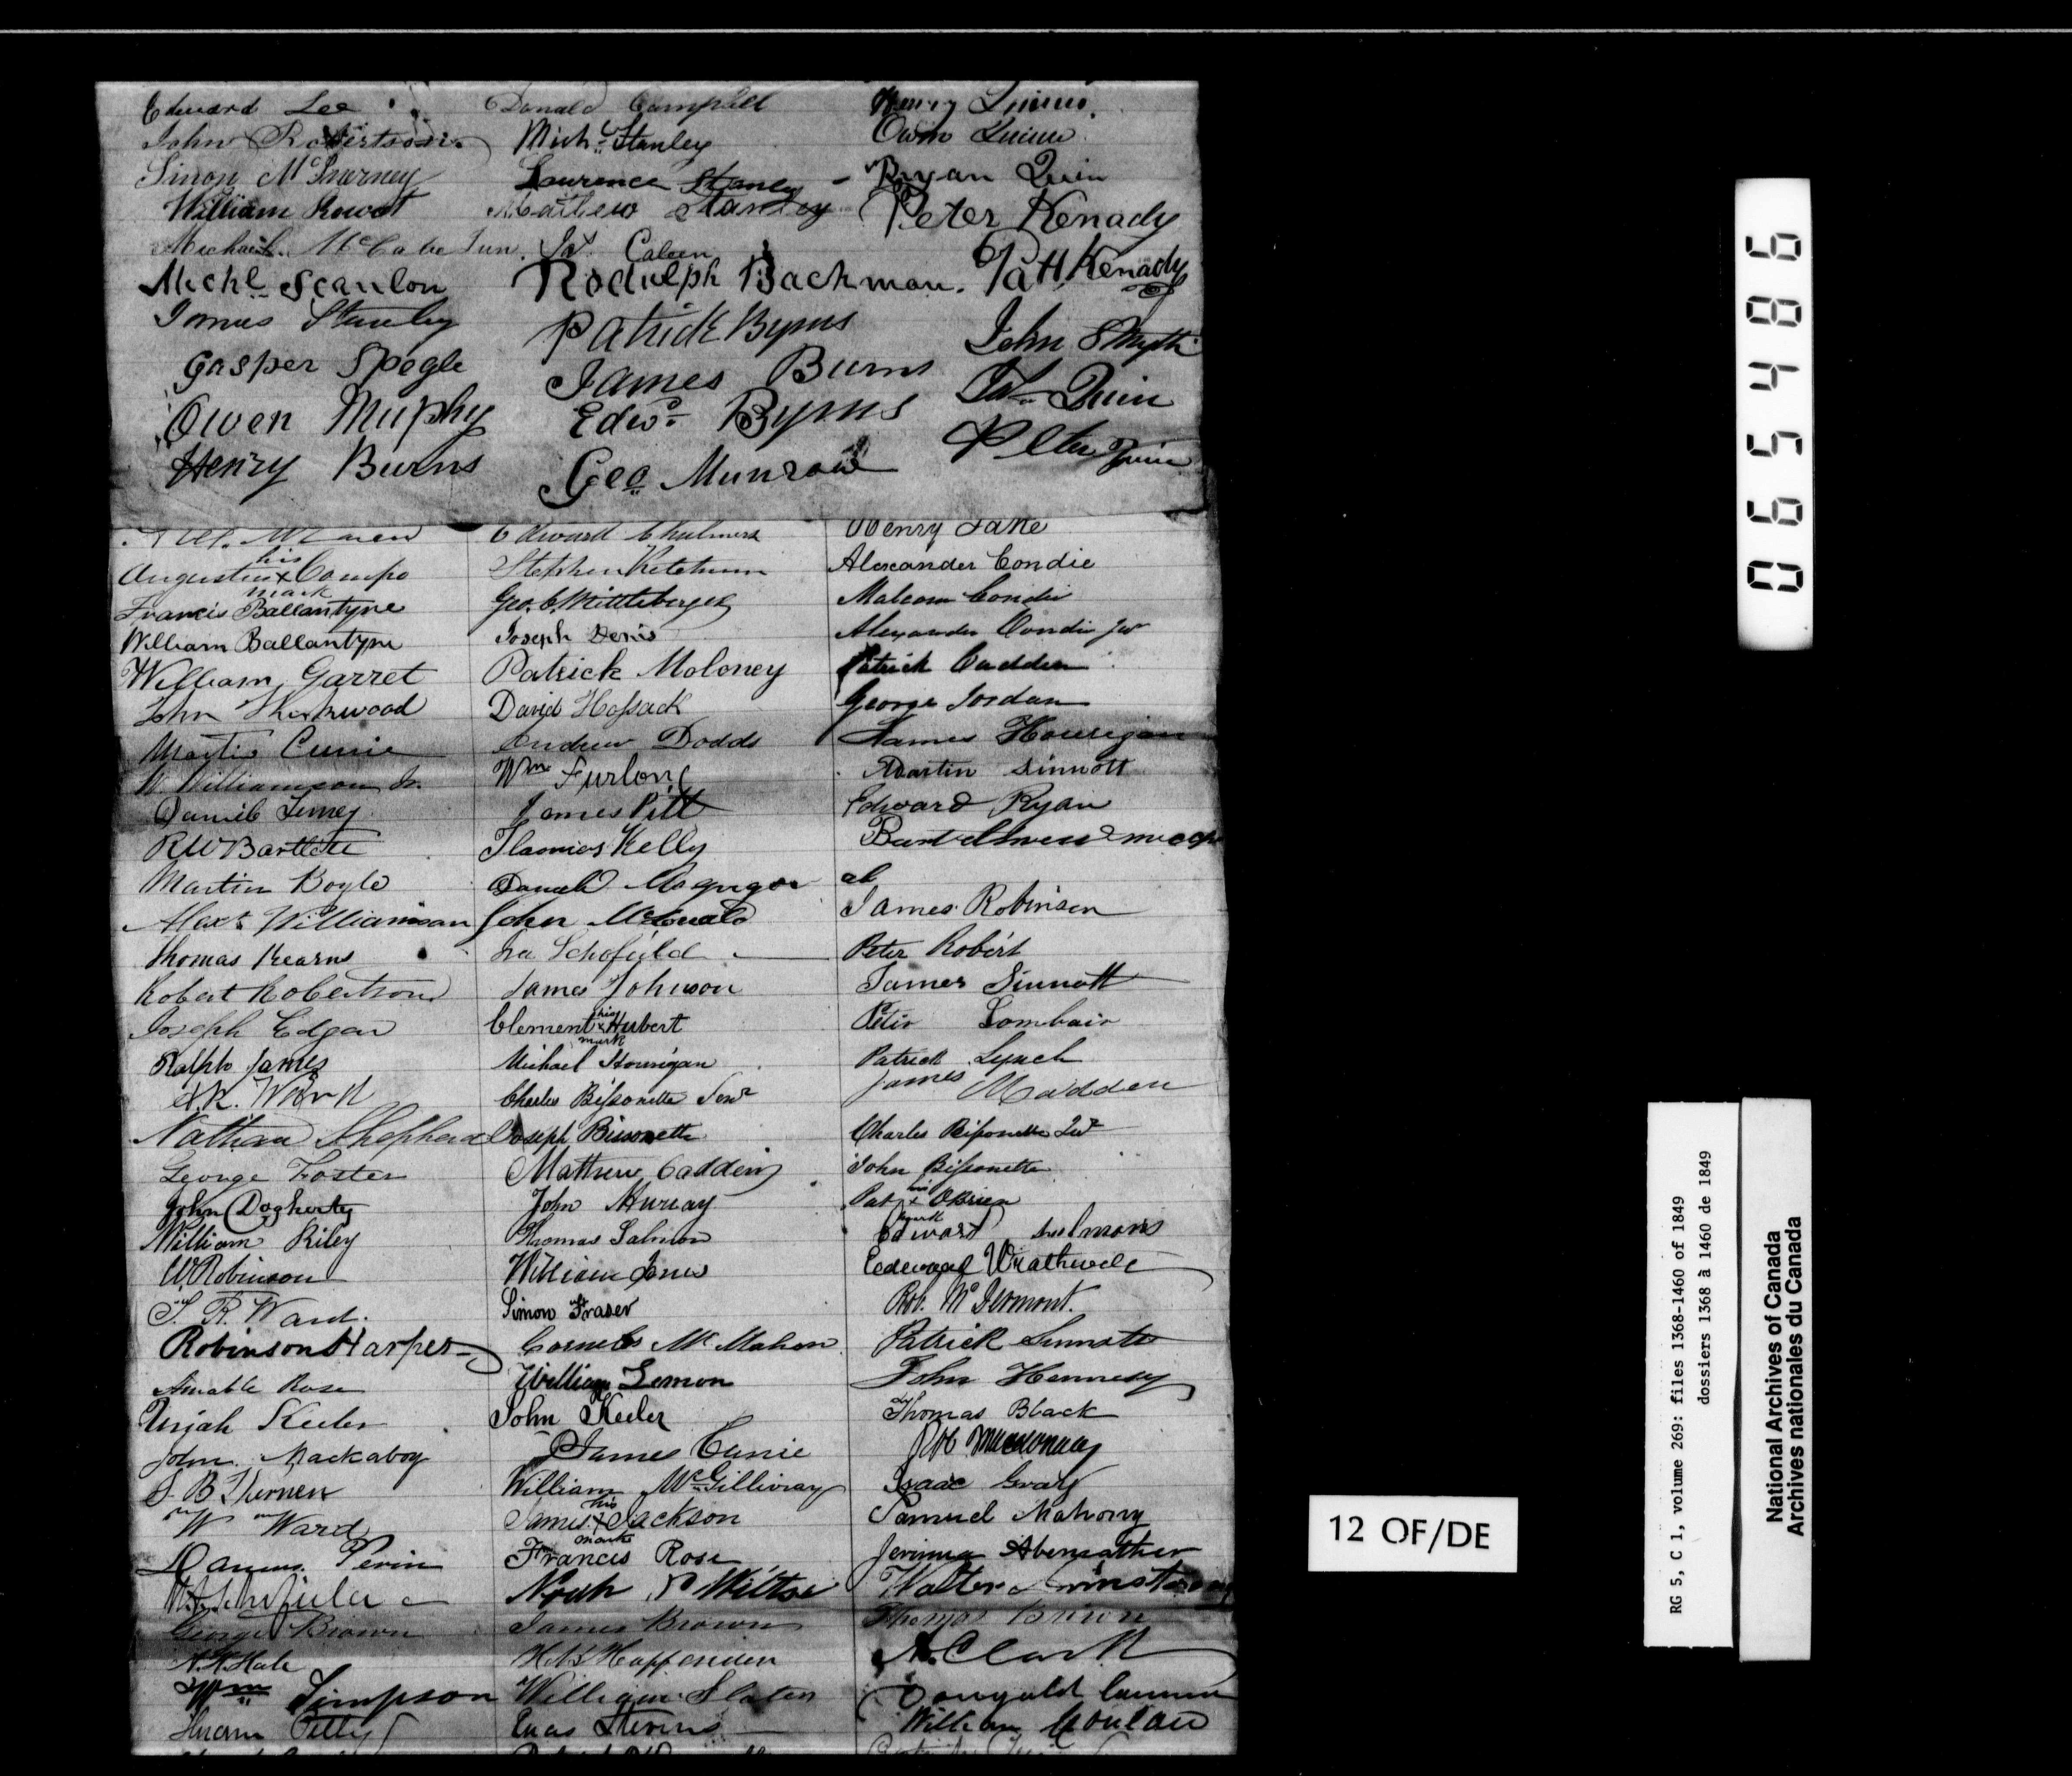 Edward Lee
John Robertson
Simon McInerney
William Rowat
Michael McCabe Jun.
Michl Scanlon
James Stanley
Gasper Spegle
Owen Murphy
Henry Burns
Donald Campbell
Michl Stanley
Laurence Stanley
Mathew Stanley
Caleen
Rodulph Bachman.
Patrick Byrns
James Burns
Edwd Byrns
Geo Munroe
Henry Quinn.
Owin Quinn
Bryan Quin
Peter Kenady
Patt Kenady
John Smyth
Quin
Peter Quin
Augustin his x mark Campo
Francis Ballantyne
William Ballantyne
William Garret
John Thirkwood
Martin Currie
W. Williamson Jr.
Daniel
RW Bartlett
Martin Boyle
Alexr Williamson
Thomas Kearns
Robert Robertson
Joseph Edgar
Ralph James
Nathan Shepherd
George Foster
John Dogherty
William Riley
W Robinson
S. R. Ward.
Robinson Harper
Amable Rose
Uriah Keeler
John Mackaboy
S B Thernen
W Ward
Perin
George Brown
H. H. Hale
Wm Simpson
Hiram Tilly
Edward Chalmers
Stephen Ketchum
Geo. C. Mittleberger
Joseph Denis
Patrick Moloney
David Hossack
Andrew Dodds
Wm Furlong
James Pitt
Thomas Kelly
Donald McGregor
John McDonald
Ira Schofield
James Johnson
Clement his x mark Hubert
Michael Hourigan
Charles Bissonette Senr
Joseph Bissonette
Mathew Cadden
John Murray
Thomas Salmon
William Jones
Simon Fraser
Cornels McMahon
William Lemon
John Keeler
James Currie
William McGillivray
James his x mark Jackson
Francis Rose
Noah P Wiltse
James Brown
Happenden
William Slater
Enos Stevens
Henry Lane
Alexander Condie
Malcom Condie
Alexander Condie Jur
Patrick Cadden
George Jordan
James Hourigan
Martin Sinnott
Edward Ryan
James Robinson
Peter Robert
James Sinnott
Peter Lombair
Patrick Lynch
James Madden
Charles Bissonette Jur
John Bissonette
Pat his x mark OBrien
Edward
Edward Wrathwell
Rob. McDermont.
Patrick Sinnott
John Hennesy
Thomas Black
Isaac Gray
Samuel Mahony
Abernather
Walter Armstrong
Thomas Brown
A. Clark
Dougald
William Moulau
065486
12 OF/DE
RG 5, C 1, volume 269: files 1368-1460 of 1849
dossiers 1368 à 1460 de 1849
National Archives of Canada
Archives nationales du Canada